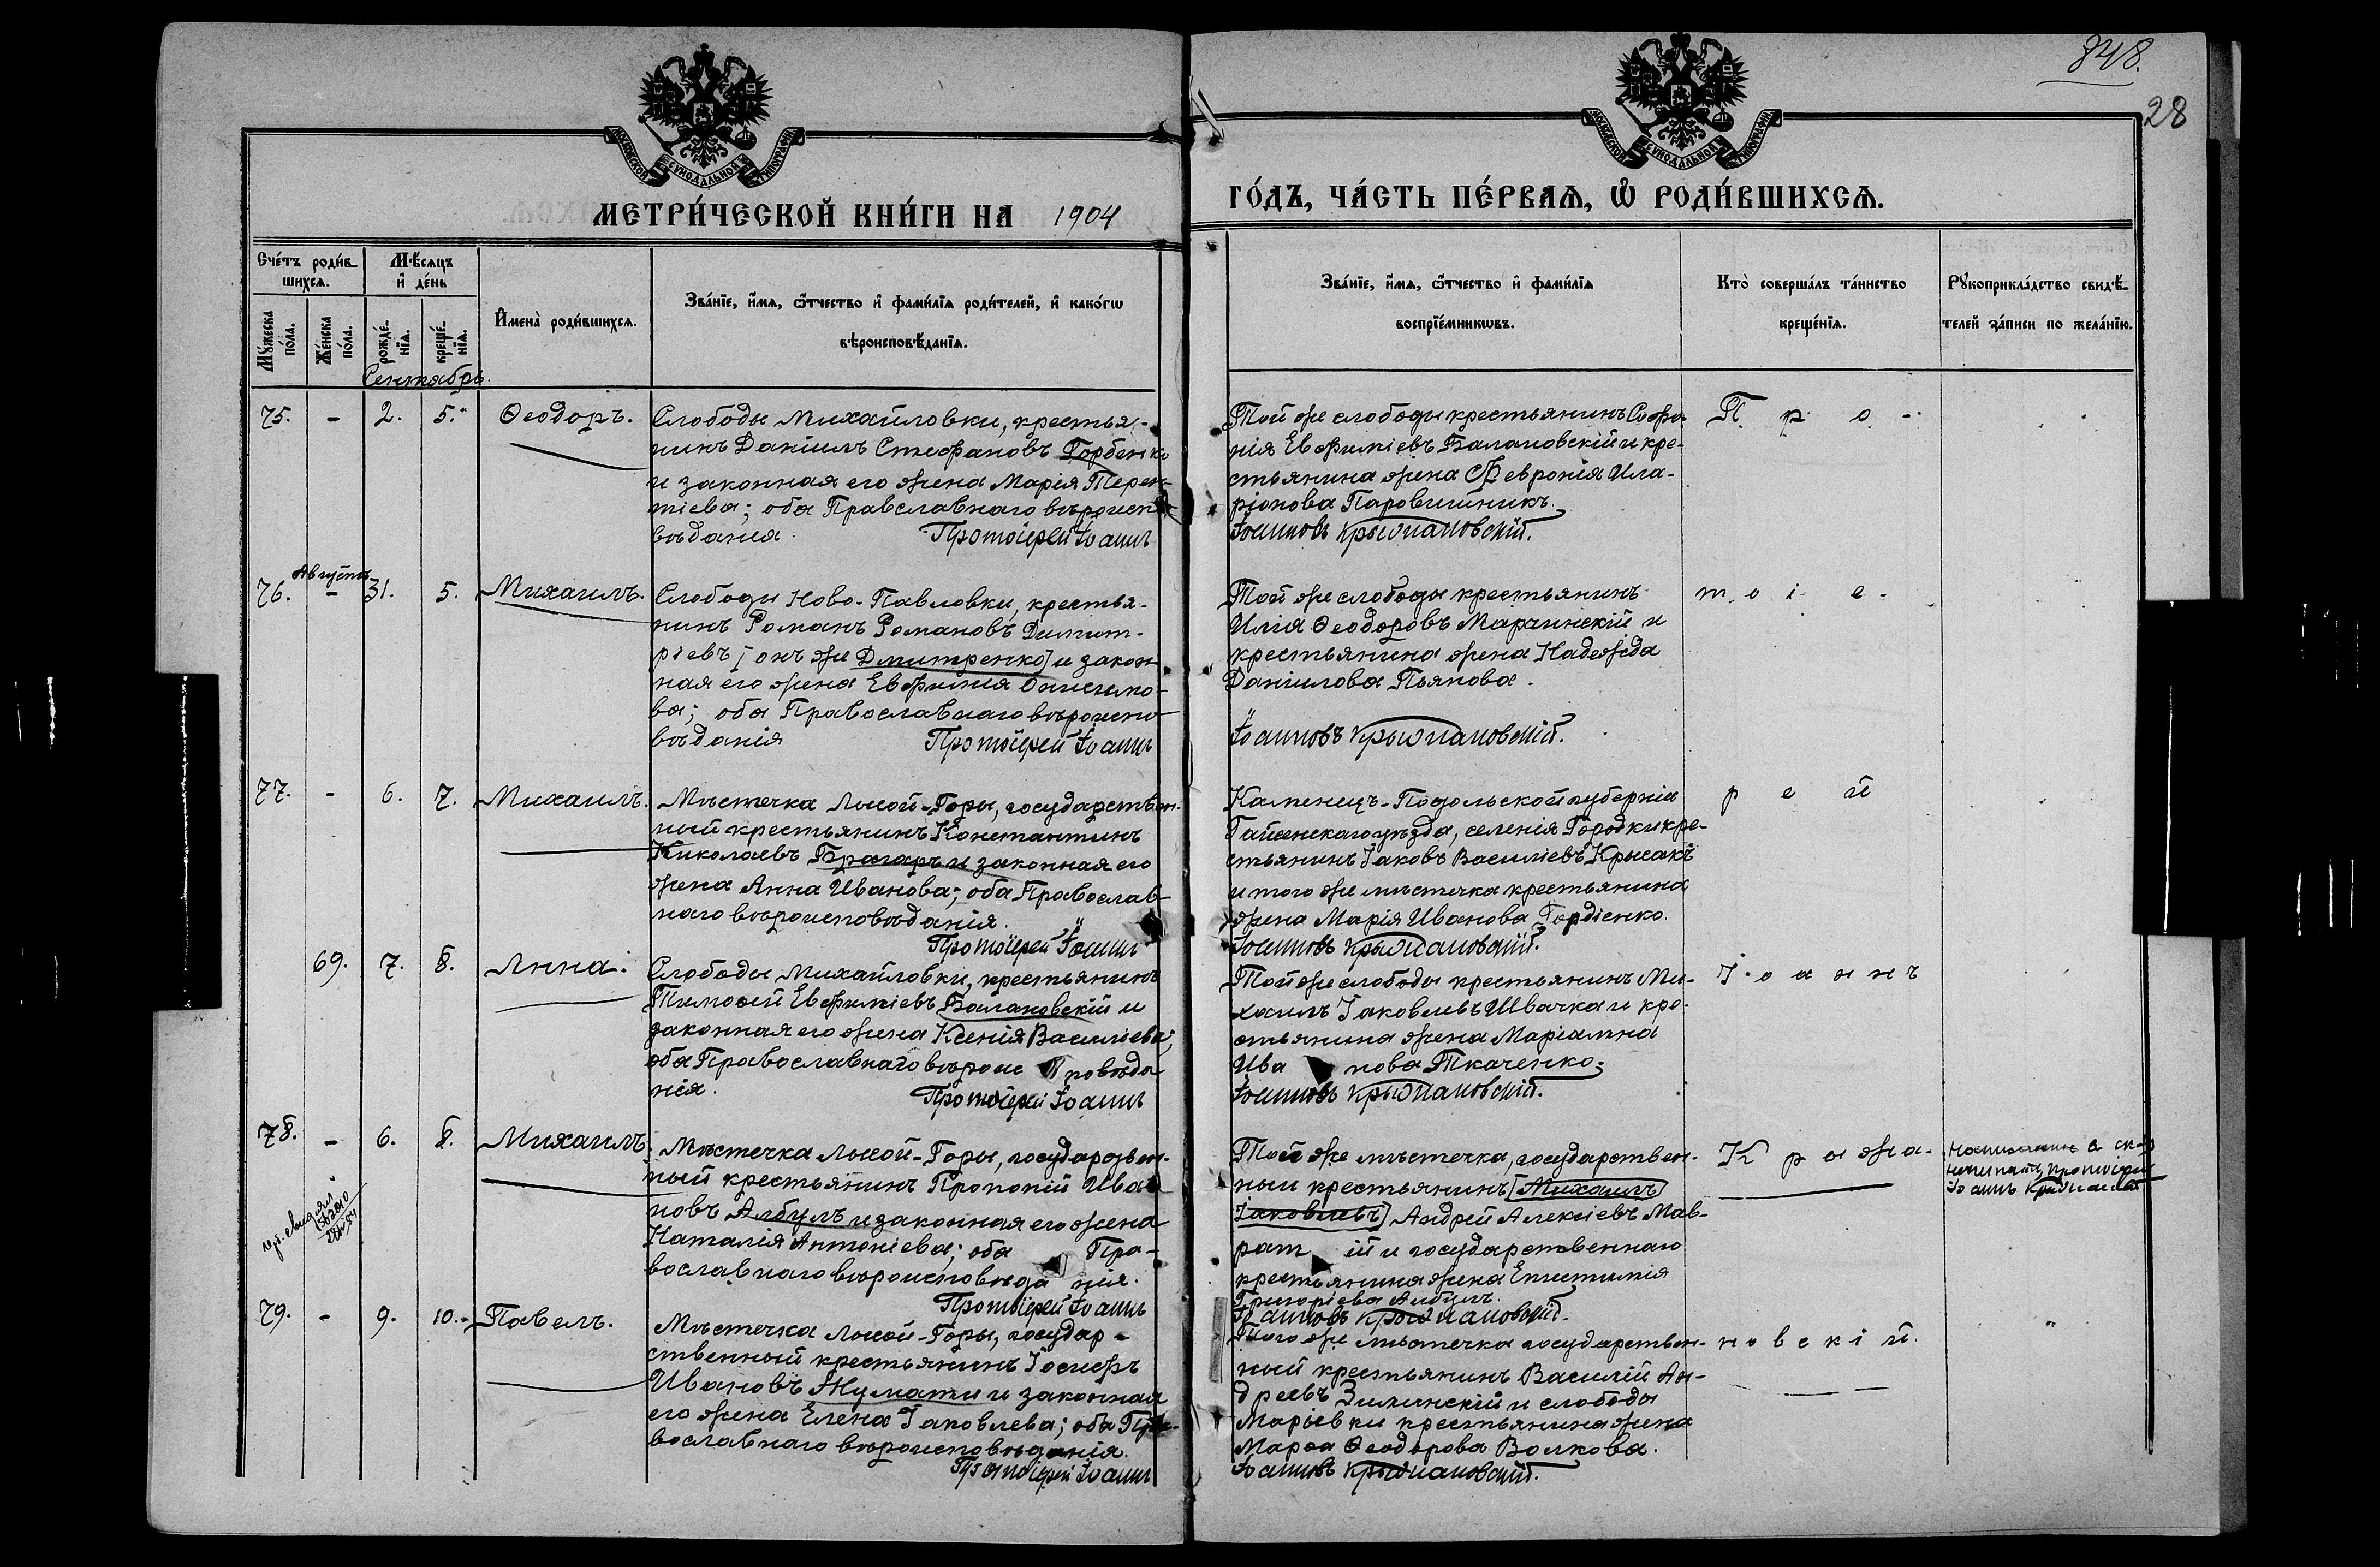 848.
28
МОСКОВСКОЙ СУНОДАЛЬНОЙ ТИПОГРАФІИ
МОСКОВСКОЙ СУНОДАЛЬНОЙ ТИПОГРАФІИ
МЕТРИ́ЧЕСКОЙ КНИ́ГИ НА 1904
ГО́ДЪ, ЧА́СТЬ ПЕ́РВАѦ, Ѡ҆ РОДИ́ВШИХСѦ.
Сче́тъ роди́в-
шихсѧ.
Мѣ́сѧцъ
и҆ де́нь
Мꙋ́жеска
по́ла.
Же́нска
по́ла.
рожде́-
нїѧ.
креще́-
нїѧ.
И҆мена̀ роди́вшихсѧ.
Зва́нїе, и҆́мѧ, ѻ҆́тчество и҆ фами́лїѧ роди́телей, и҆ како́гѡ
вѣроисповѣ́данїѧ.
Зва́нїе, и҆́мѧ, ѻ҆́тчество и҆ фами́лїѧ
воспрїе́мникѡвъ.
Кто̀ соверша́лъ та́инство
креще́нїѧ.
Рꙋкоприкла́дство свидѣ́-
телей за́писи по жела́нїю.
Сентябрь.
75. - 2. 5. Ѳеодоръ.
Слободы Михайловки, крестья-
нинъ Даніилъ Стефановъ Горбенко
и законная его жена Марія Терен-
тіева; оба Правславнаго вѣроиспо
вѣданія. Протоіерей Іоаннъ
Той же слободы крестьянинъ Софро-
нія Евфиміевъ Балановскій и кре-
стьянина жена Февронія Ила-
ріонова Паровишникъ.
Іоанновъ Крыжановскій.
П р о -
76. Августъ - 31. 5. Михаилъ.
Слободы Ново-Павловки, крестья-
нинъ Романъ Романовъ Димит-
ріевъ [онъ же Дмитренко] и закон-
ная его жена Евфимія Онисимо-
ва; оба Православнаго вѣроиспо-
вѣданія Протоіерей Іоаннъ
Той же слободы крестьянинъ
Илія Ѳеодоровъ Марчинскій и
крестьянина жена Надежда
Даніилова Пьянова.
Іоанновъ Крыжановскій.
т о і е -
77. - 6. 7. Михаилъ.
Мѣстечка Лысой-Горы, государствен-
ный крестьянинъ Константинъ
Николаевъ Брагаръ и законная его
жена Анна Иванова; оба Православ-
наго вѣроисповѣданія.
Протоіерей Іоаннъ
Каменецъ-Подольской губерніи
Гайсенскаго уѣзда, селенія Городки кре-
стьянинъ Іаковъ Василіевъ Крысакъ
и того же мѣстечка крестьянина
жена Марія Иванова Гордіенко.
Іоанновъ Крыжановскій.
р е й
69. 7. 8. Анна.
Слободы Михайловки, крестьянинъ
Тимоѳей Евфиміевъ Балановскій и
законная его жена Ксенія Василіева;
оба Православнаго вѣроис повѣда
нія. Протоіерей Іоаннъ
Той же слободы крестьянинъ Ми-
хаилъ Іаковлевъ Швачка и кре-
стьянина жена Маріамна
Ива нова Ткаченко.
Іоанновъ Крыжановскій.
І о а н н ъ
78. - 6. 8. Михаилъ.
Мѣстечка Лысой-Горы, государвен-
ный крестьянинъ Прокопій Ива-
новъ Албулъ и законная его жена
Наталія Антоніева; оба Пра-
вославнаго вѣроисповѣда нія.
Протоіерей Іоаннъ
Той же мѣстечка, государствен-
ный крестьянинъ [Михаилъ
Іаковлевъ] Андрей Алексіевъ Мав-
рат ій и государственнаго
крестьянина жена Епистимія
Григоріева Албулъ.
Іоанновъ Крыжановскій.
К р ы ж а -
79. - 9. 10. Павелъ.
Мѣстечка Лысой-Горы, государ-
ственный крестьянинъ Іосифъ
Ивановъ Жумати и законная
его жена Елена Іаковлева; оба Пра-
вославнаго вѣроисповѣданія.
Протоіерей Іоаннъ
Того же мѣстечка государствен-
ный крестьянинъ Василій Ан-
дреевъ Зилинскій и слободы
Марьевки крестьянина жена
Марѳа Ѳеодорова Волкова.
Іоанновъ Крыжановскій.
н о в с к і й.